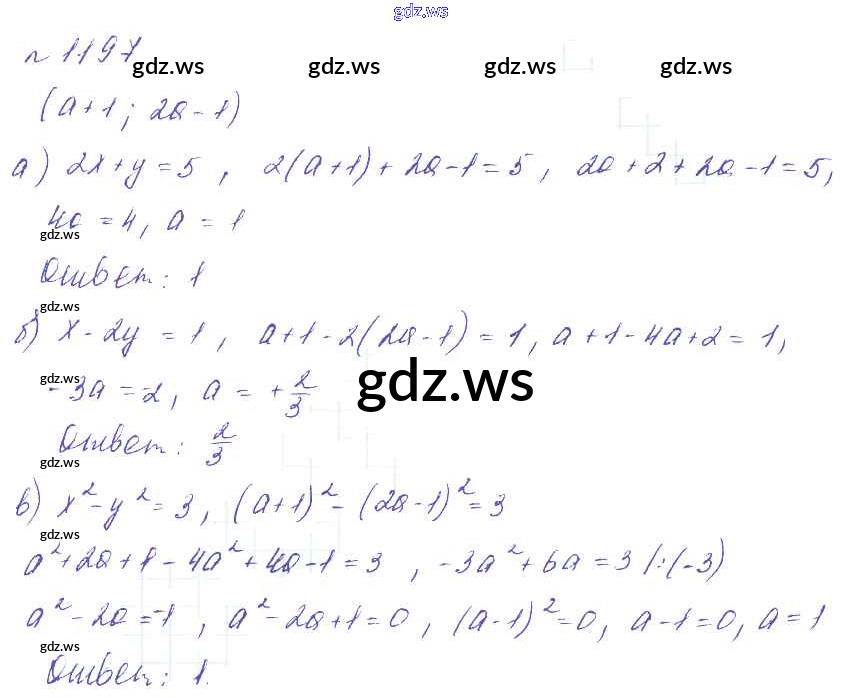 gdz.ws
№ 1197
gdz.ws gdz.ws gdz.ws gdz.ws
(a+1; 2a-1)
а) 2x+y=5, 2(a+1)+2a-1=5, 2a+2+2a-1=5,
4a=4, a=1
gdz.ws
Ответ: 1
gdz.ws
б) x-2y=1, a+1-2(2a-1)=1, a+1-4a+2=1,
gdz.ws
-3a=-2, a=+2/3
gdz.ws
Ответ: 2/3
gdz.ws
в) x²-y²=3, (a+1)²-(2a-1)²=3
gdz.ws
a²+2a+1-4a²+4a-1=3, -3a²+6a=3 /:(-3)
a²-2a=-1, a²-2a+1=0, (a-1)²=0, a-1=0, a=1
gdz.ws
Ответ: 1.